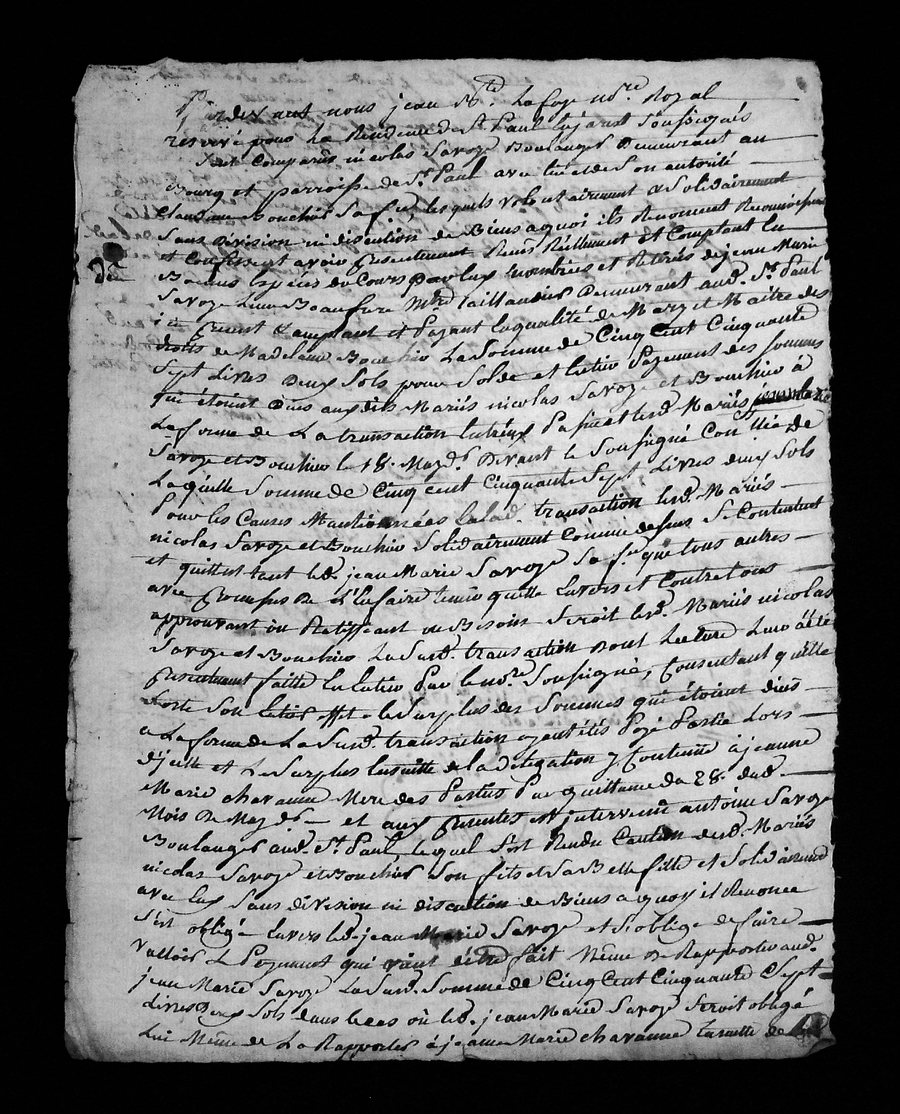 Pardevant nous jean Bte. Lafoge nore. Royal
reservé pour la Residence de St. Paul En jarest soussignés
sont Comparus nicolas Savoye Boulanger Demeurant au
Bourg et parroisse de St. Paul avec luy et de son autorité
Claudine Bouchier Sa fe., lesquels volontairement et Solidairement
Sans Division ni discution de Biens aquoi ils Renoncent
et Confessent avoir presentement Reçus Réellement Et Comptant En
Bonnes Espèces du Cours Par Eux nombrées et Retirés de jean Marie
Savoye Mtre. taillandier Demeurant aud. St. Paul
ici present acceptant et Payant En qualité de Mary et Maitre des
droits de Bouchier La Somme de Cinq Cent Cinquante
Sept Livres Deux Sols pour Solde et Entier Payement des Sommes
qui étoient Dues auxdits Mariés nicolas Savoye et Bouchier à
La forme de La transaction Entreux Passée et lesd. Mariés
Savoye et Bouchier le 18. May dr. Devant le Soussigné
Laquelle Somme de Cinq Cent Cinquante Sept Livres deux Sols
Pour les Causes Mentionnées En lad. transaction lesd. Mariés
nicolas Savoye et Bouchier Solidairement Comme dessus Se Contentent
et quittent tant led. jean Marie Savoye Sa fe. que tous autres
avec promesse De L'En faire tenir quitte Envers et Contre tous
approuvant ou Ratiffiant ou Besoin Seroit lesd. Mariés nicolas
Savoye et Bouchier La Susd. transaction Dont Lecture Leur a été
presentement faitte En Entier Par le nore. Soussigné, Consentant qu'elle
Sorte Son Entier effet le Surplus des Sommes qui étoient dues
a La forme de La Susd. transaction ayant étés Payé Partie Lors
d'icelle et Le Surplus Ensuitte de la Délégation y Contenüe à jeanne
Marie chavanne Mere des Parties Par quittance du 28. dud.
Mois de May dr. et aux presentes est intervenu antoine Savoye
Boulanger aud. St. Paul lequel s'est Rendu Caution desd. Mariés
nicolas Savoye et Bouchier Son fils et Sa Belle fille et Solidairement
avec Eux Sans division ni discution de Biens a quoy il Renonce
s'est obligé Envers led. jean Marie Savoye et S'oblige de faire
valloir Le Payement qui vient d'être fait Même De Rapporter aud.
jean Marie Savoye La Susd. Somme de Cinq Cent Cinquante Sept
Livres Deux Sols dans le cas où led. jean Marie Savoye Seroit obligé
Lui Même de La Rapporter à jeanne Marie chavanne Ensuitte de